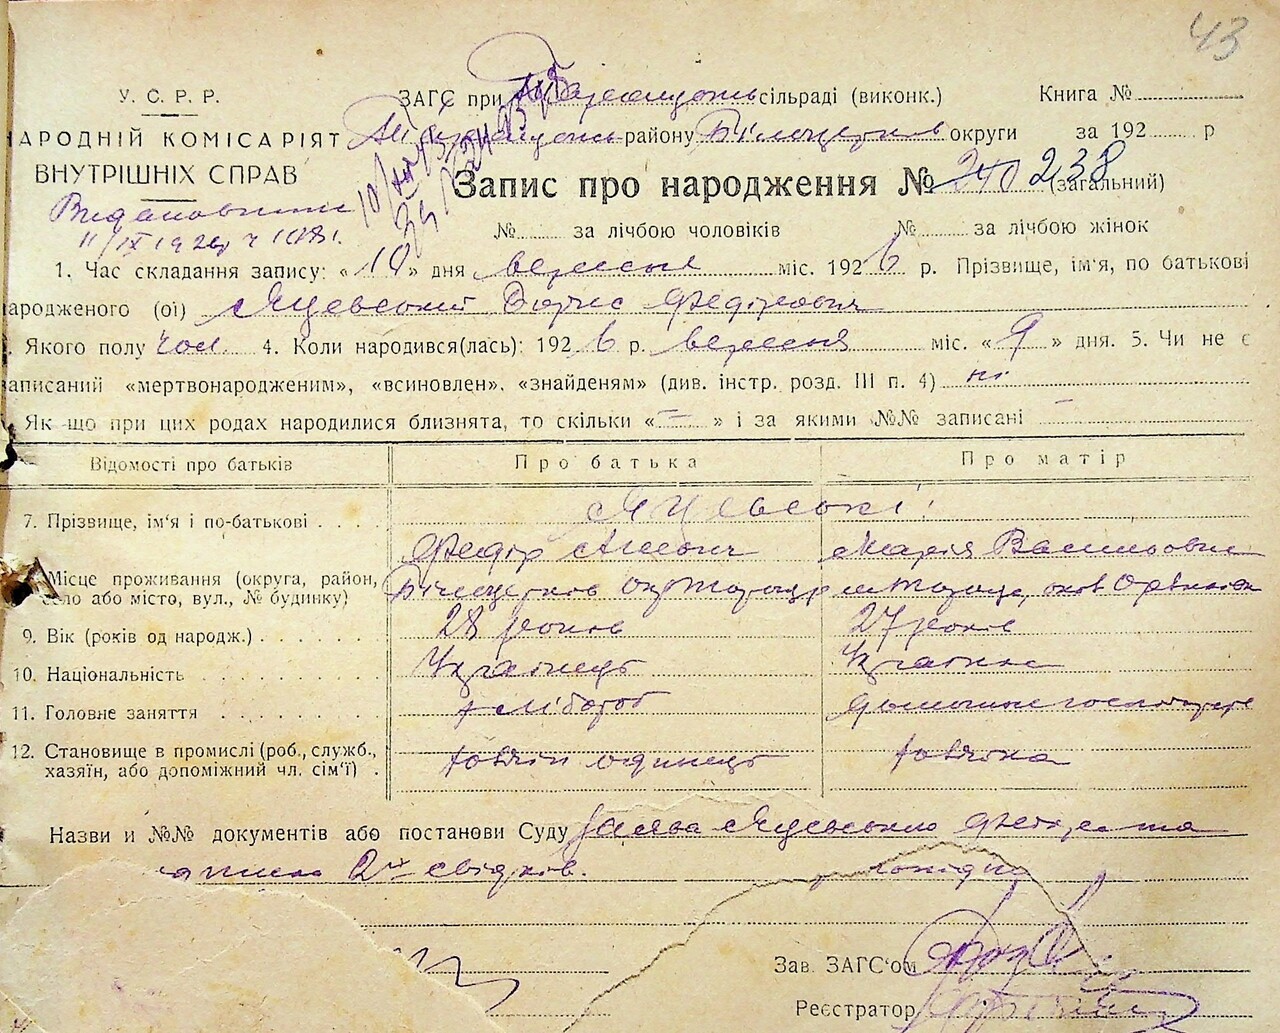 43
У. С. Р. Р.
НАРОДНІЙ КОМІСАРІЯТ
ВНУТРІШНІХ СПРАВ
ЗАГС при сільраді (виконк.) Книга №
району Білоцерков округи за 192 р
Запис про народження № 240 238 (загальний)
11/IX 1926
№ за лічбою чоловіків № за лічбою жінок
1. Час складання запису: «10» дня вересня міс. 1926 р. Прізвище, ім'я, по батькові
народженого (ої) Яцевський Борис Федорович
Якого полу чол. 4. Коли народився(лась): 1926 р. вересня міс. «9» дня. 5. Чи не є
записаний «мертвонародженим», «всиновлен», «знайденям» (див. інстр. розд. III п. 4) ні
Як що при цих родах народилися близнята, то скільки «–» і за якими №№ записані –
Відомості про батьків Про батька Про матір
7. Прізвище, ім'я і по-батькові Яцевські
Федір Марія Василовна
Місце проживання (округа, район, село або місто, вул., № будинку) Білоцерков окр
9. Вік (років од народж.) 28 років 27 років
10. Національність Українець Українка
11. Головне заняття хлібороб домашнє господарство
12. Становище в промислі (роб., служб., хазяїн, або допоміжний чл. сім'ї)
Назви и №№ документів або постанови Суду Заява Яцевського Федора та
2х свідків.
Зав. ЗАГС'ом
Реєстратор